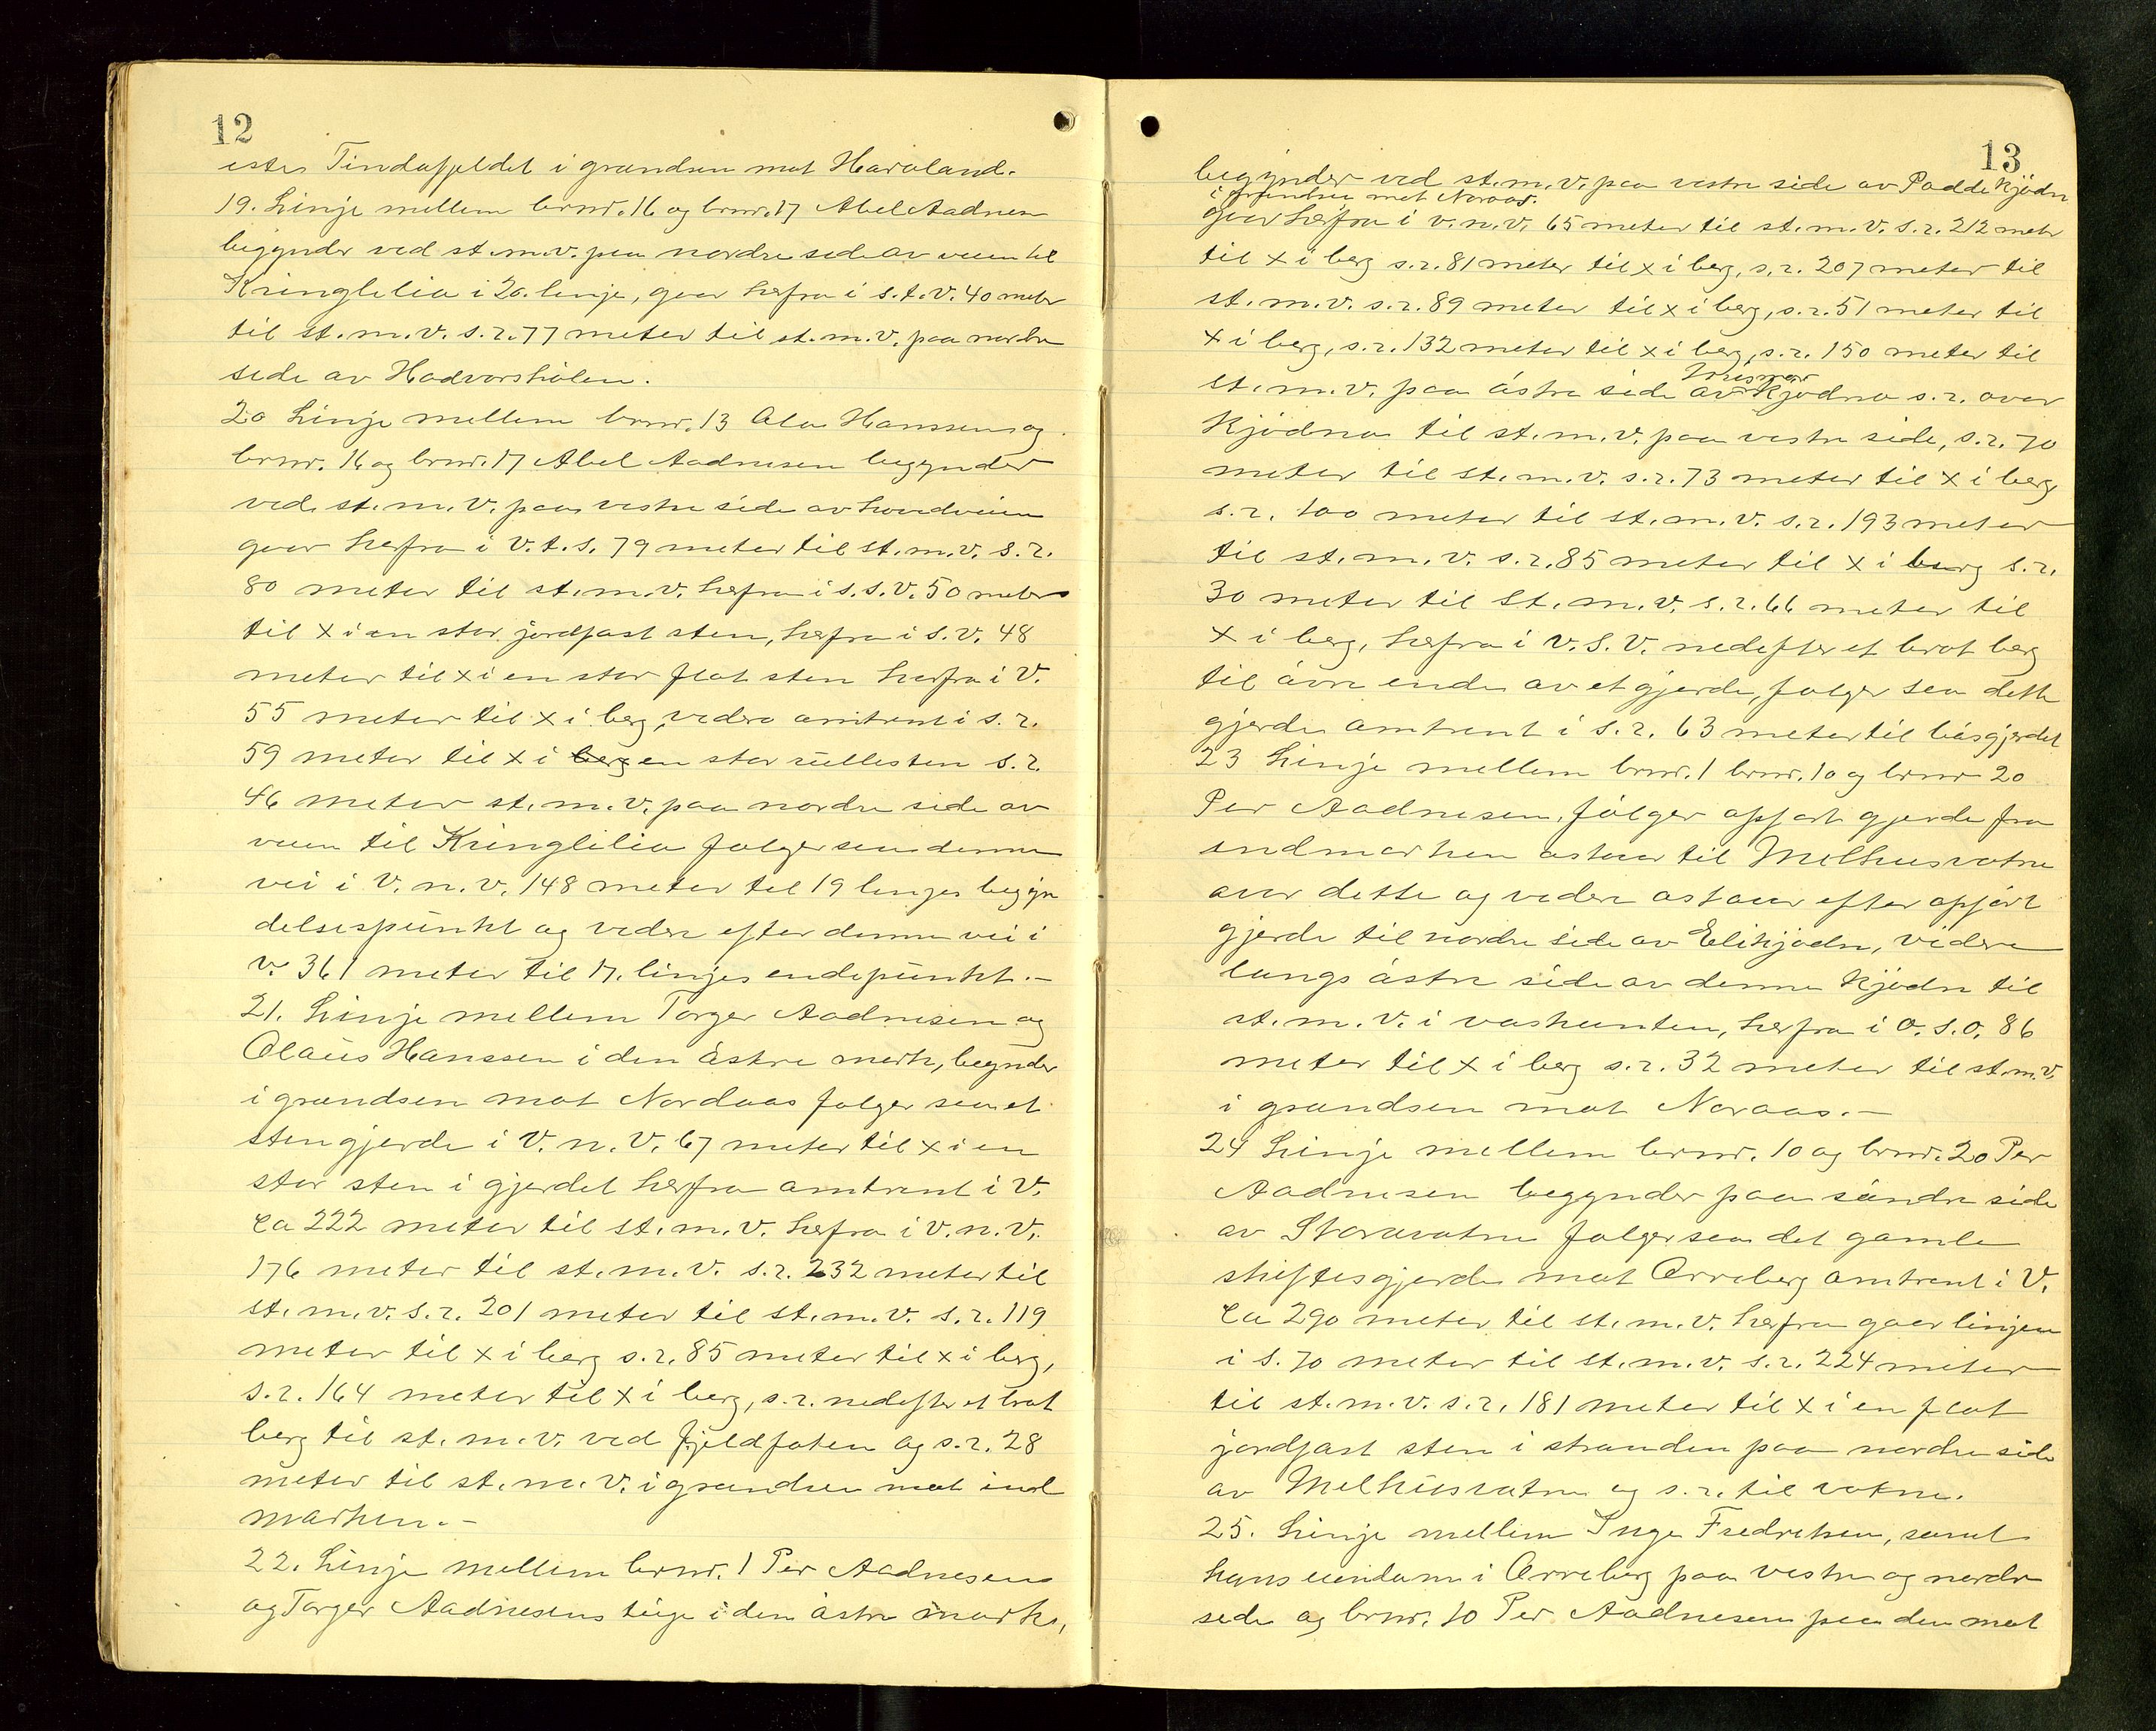 12
ester Tindafjeldet i grændsen mot Havaland.
19. Linje mellem brnr. 16 og brnr. 17 Abel Aadnesen
begynder ved st.m.v. paa nordre side av veien til
Kringlelia i 20. linje, gaar herfra i s.t.v. 40 meter
til st.m.v. s.r. 77 meter til st.m.v. paa nordre
side av Hadvarshölen.
20 Linje mellem brnr. 13 Ola Hanssen og
brnr. 16 og brnr. 17 Abel Aadnesen begynder
ved st.m.v. paa vestre side av hovedveien
gaar herfra i v.t.s. 79 meter til st.m.v. s.r.
80 meter til st.m.v. herfra i s.s.v. 50 meter
til x i en stor jordfast sten, herfra i s.v. 48
meter til x i en stor flat sten herfra i v.
55 meter til x i berg, videre omtrent i s.r.
59 meter til x i berg en stor rullesten s.r.
46 meter st.m.v. paa nordre side av
veien til Kringlilia folger saa denne
vei i v.n.v. 148 meter til 19 linjes begyn
delsespunkt og videre efter denne vei i
v. 361 meter til 17. linjes endepunkt.-
21. Linje mellem Torger Aadnesen og
Olaus Hanssen i den östre mark, begynder
i grændsen mot Nordaas folger saa et
stengjerde i v.n.v. 67 meter til x i en
stor sten i gjerdet herfra omtrent i v.
ca 222 meter til st.m.v. herfra i v.n.v.
176 meter til st.m.v. s.r. 232 meter til
st.m.v. s.r. 201 meter til st.m.v. s.r. 119
meter til x i berg s.r. 85 meter til x i berg,
s.r. 164 meter til x i berg, s.r. nedefter et brat
berg til st.m.v. ved fjeldfoten og s.r. 28
meter til st.m.v. i grændsen mot ind
marken.-
22. Linje mellem brnr. 1 Per Aadnesen
og Torger Aadnesens teige i den östre mark,
13
begynder ved st.m.v. paa vestre side av Paddekjödn
i grændsen mot Noraas.
gaar herfra i v.n.v. 65 meter til st.m.v. s.r. 212 meter
til x i berg s.r. 81 meter til x i berg, s.r. 207 meter til
st.m.v. s.r. 89 meter til x i berg, s.r. 51 meter til
x i berg, s.r. 132 meter til x i berg, s.r. 150 meter til
st.m.v. paa östre side av Kjödna s.r. over
Kjödna til st.m.v. paa vestre side, s.r. 70
meter til st.m.v. s.r. 73 meter til x i berg
s.r. 100 meter til st.m.v. s.r. 193 meter
til st.m.v. s.r. 85 meter til x i berg s.r.
30 meter til st.m.v. s.r. 66 meter til
x i berg, herfra i v.s.v. nedefter et brat berg
til övre ende av et gjerde, folger saa dette
gjerde omtrent i s.r. 63 meter til bösgjerdet
23 Linje mellem brnr. 1 brnr. 10 og brnr 20
Per Aadnesen, fölger opfört gjerde fra
indmarken östover til Melhusvatne
over dette og videre östover efter opfört
gjerde til nordre side av Elikjodn, videre
langs östre side av denne Kjödn til
st.m.v. i vaskanten, herfra i o.s.o. 86
meter til x i berg s.r. 32 meter til st.m.v.
i grændsen mot Noraas.-
24 Linje mellem brnr. 10 og brnr. 20 Per
Aadnesen begynder paa söndre side
av Storavatne folger saa det gamle
skiftesgjerde mot Orreberg omtrent i v.
ca 290 meter til st.m.v. herfra gaar linjen
i s. 70 meter til st.m.v. s.r. 224 meter
til st.m.v. s.r. 181 meter til x i en flat
jordfast sten i stranden paa nordre side
av Melhusvatne og s.r. til vatne.
25. Linje mellem Inge Fredriksen, samt
hans eiendom i Orreberg paa vestre og nordre
side og brnr. 10 Per Aadnesen paa den mot